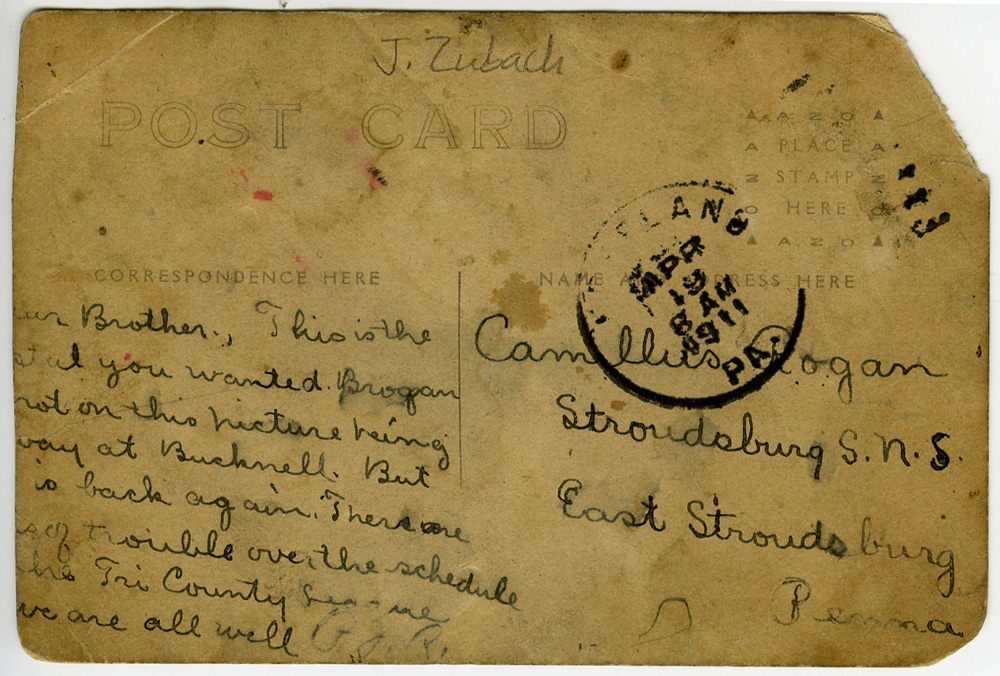 J. Zubach
POST CARD
AZO
PLACE
STAMP
HERE
AZO
LAND
APR
19
8 AM
1911
PA.
CORRESPONDENCE HERE
NAME A RESS HERE
ur Brother., This is the
stal you wanted. Brogan
not on this picture being
way at Bucknell. But
is back again. There are
s of trouble over the schedule
the Tri County League
we are all well P. J. R.
Camillus Rogan
Stroudsburg S.N.S.
East Stroudsburg
Penna.